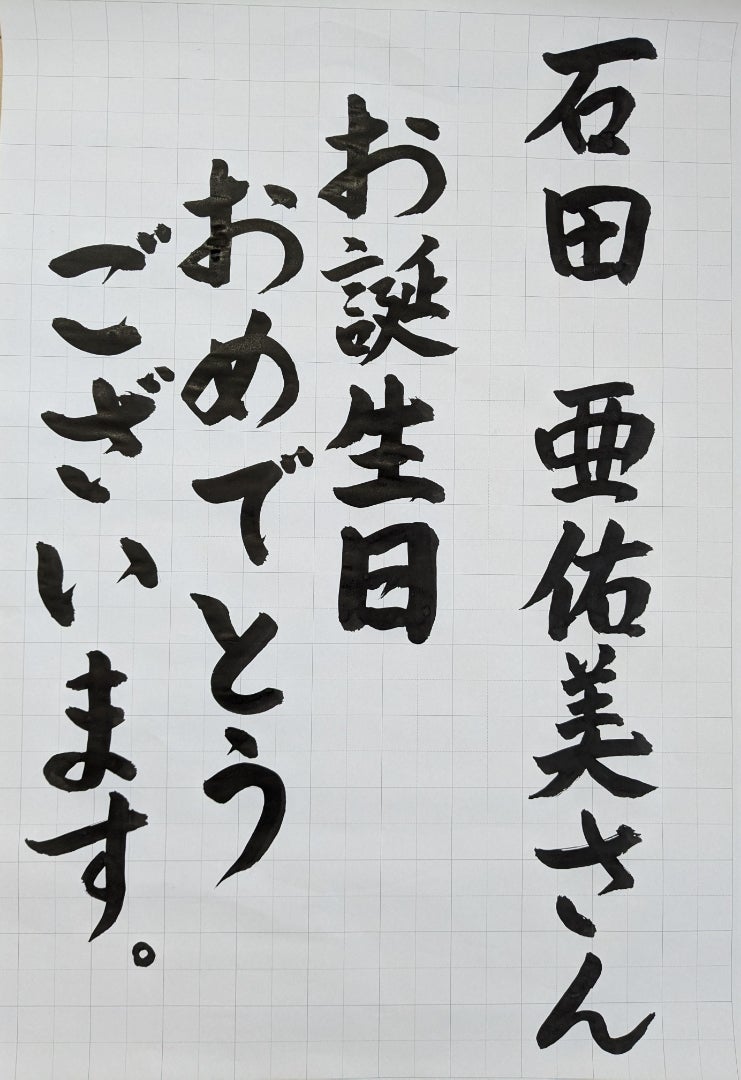 石田 亜佑美さん
お誕生日
おめでとう
ございます。